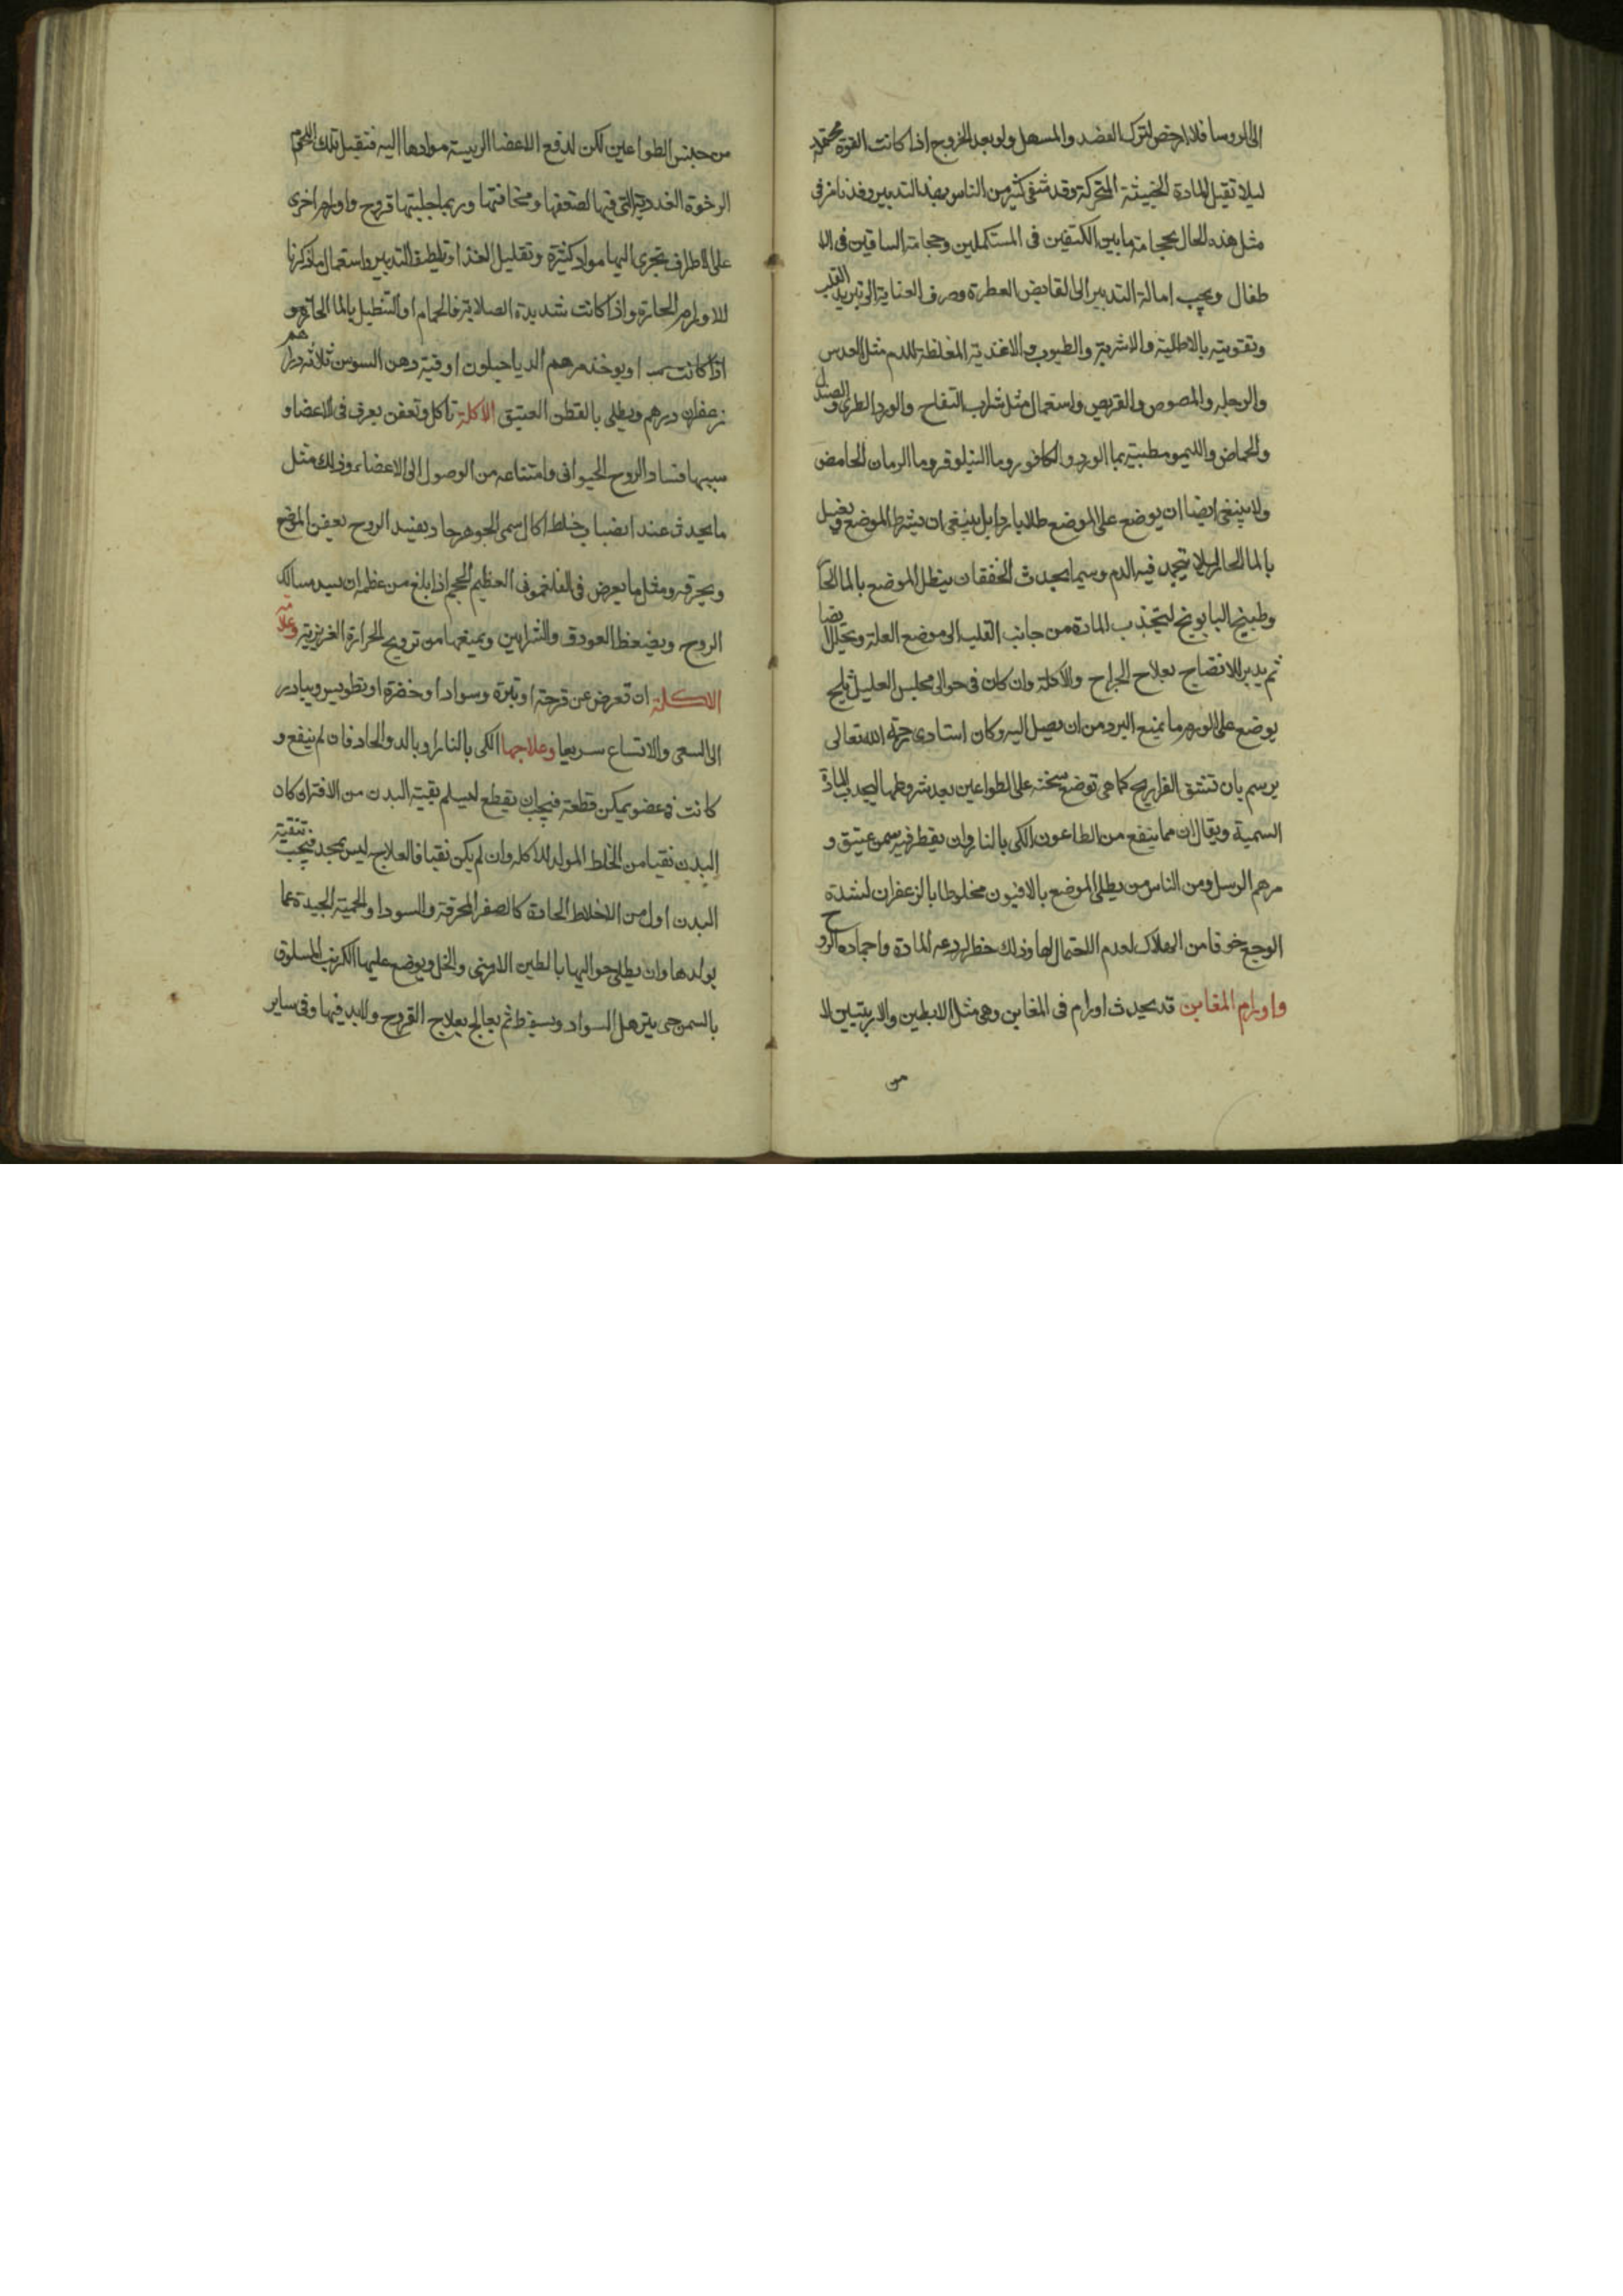 الى الروسا فلا ارخص لترك الفصد والمسهل ولو بعد الخروج اذا كانت القوة محتملة
ليلا تقبل المادة الخبيثة المتحركة وقد شفى كثير من الناس بهذا التدبير وقد نامر فى
مثل هذه الحال بحجامة ما بين الكتفين فى المستكملين وحجامة الساقين فى الا
طفال ويجب امالة التدبير الى القابض العطرة وصرف العناية الى تبريد القلب
وتقويته بالاطلية والاشربة والطيوب والاغذية المغلظة للدم مثل العدس
والرجله والمصوص والقريص واستعمال مثل شراب التفاح والورد الطرى والصندل
والحماض والليمو مطيبة بما الورد والكافور وما النيلوفر وما الرمان الحامض
ولا ينبغى ايضا ان يوضع على الموضع طلا باردا بل ينبغى ان يشرط الموضع ويغسل
بالما الحار ليلا يتجمد فيه الدم وسيما يحدث الخفقان ينطل الموضع بالما الحار
وطبيخ البابونج لتجذب المادة من جانب القلب الى موضع العلة ويحلل ايضا
ثم يدبر للانضاج بعلاج الجراح والاكلة وان كان فى حوالى مجلس العليل ثلج
يوضع على الورم ما يمنع البرد من ان يصل اليه وكان استادى رحمة الله تعالى
يرسم بان تشق الفراريج كما هى توضع سخنه على الطواعين بعد شروطها ليجذب المادة
السمية ويقال ان مما ينفع من الطاعون الكى بالنار وان يقطر فيه سمن عتيق و
مرهم الرسل ومن الناس من يطلى الموضع بالافيون مخلوطا بالزعفران لشدة
الوجع خوفا من الهلاك لعدم الاحتمال لها وذلك خطا لردعه المادة واجماده الروح
واورام المغابن قد يحدث اورام فى المغابن وهى مثل الابطين والاربيتين لا
من
من جنس الطواعين لكن لدفع الاعضا الرييسة موادها اليه فتقبل تلك اللحوم
الرخوة الغددية التى فيها لضعفها وسخافتها وربما جلبتها قروح واورام اخرى
على الاطراف تجرى اليها مواد كثيرة وتقليل الغذا وتلطيف التدبير واستعمال ما ذكرنا
للاورام الحارة واذا كانت شديدة الصلابة فالحمام او التنطيل بالما الحار و
اذا كانت او يوخذ مرهم الدياخيلون اوقية دهن السوسن ثلاثة دراهم
زعفران درهم ويطلى بالقطن العتيق الاكلة تاكل وتعفن يعرض فى الاعضا و
سببها فساد الروح الحيوانى وامتناعه من الوصول الى الاعضاء وذلك مثل
ما يحدث عند انصباب خلط اكال سمى الجوهر حاد يفسد الروح يعفن الموضع
ويحرقه ومثل ما يعرض فى الفلغمونى العظيم الحجم اذا بلغ من عظمه ان يسد مسالك
الروح ويضغط العروق والشرايين ويمنعها من ترويح الحرارة الغريزية وعلامة
الاكلة ان تعرض عن قرحة او بثرة وسوادا وخضرة او تطويس ويبادر
الى السعى والاتساع سريعا وعلاجها الكى بالنار او بالدوا الحاد فان لم ينفع و
كانت فى عضو يمكن قطعة فيجب ان يقطع ليسلم بقية البدن من الافة ان كان
البدن نقيا من الخلط المولد للاكله وان لم يكن نقيا فالعلاج ليس بمجد فيجب تنقية
البدن اولا من الاخلاط الحادة كالصفرا المحرقة والسودا والحمية الجيدة عما
يولدها وان يطلى حواليها بالطين الارمنى والخل ويوضع عليها الكرنب المسلوق
بالسمن حتى يترهل السواد ويسقط ثم يعالج بعلاج القروح ولابد فيها وفى ساير